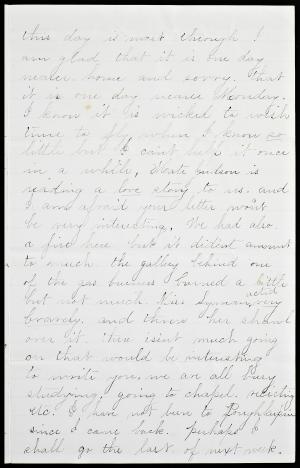 this day is most through. I
am glad that it is one day
nearer home and sorry. that
it is one day nearer Monday.
I know it is wicked to wish
time to fly when I know so
little but I can't help it once
in a while, Kate Wilson is
reading a love story to us. and
I am afraid your letter won't
be very interesting. We had also
a fire here but it didest amount
to much. the gallery behind one
of the gas burners burned a little
but not much. Miss Lyman acted very
bravely. and threw her shawl
over it. There isent much going
on that would be interesting
to write you. we are all busy
studying, going to chapel. reciting
etc. I have not been to Poughkeepsie
since I came back. perhaps I
shall go the last of next week.